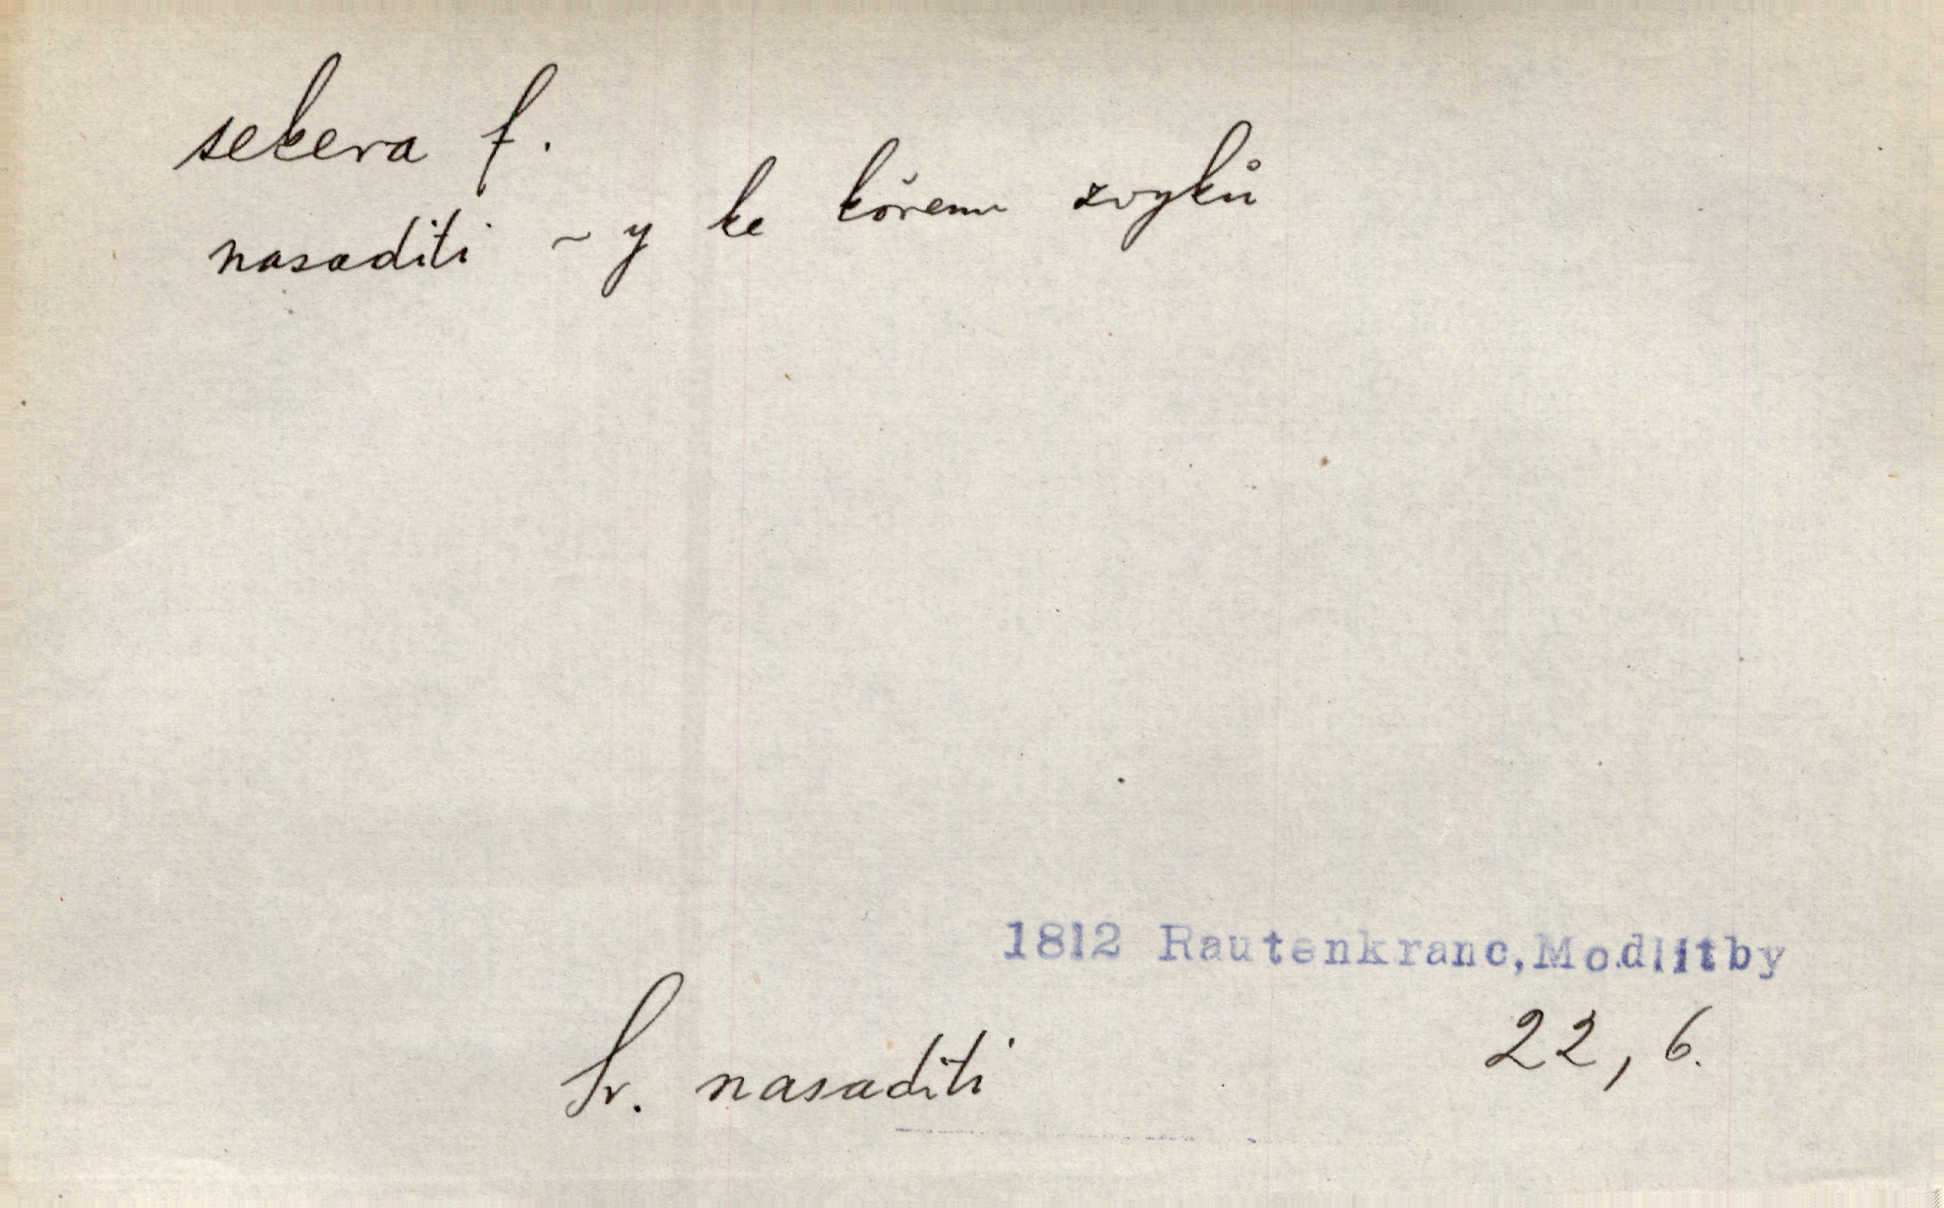 sekera f.
nasaditi ~ y ke kořenu zvyků
1812 Rautenkranc, Modlitby
22, 6.
Sr. nasaditi